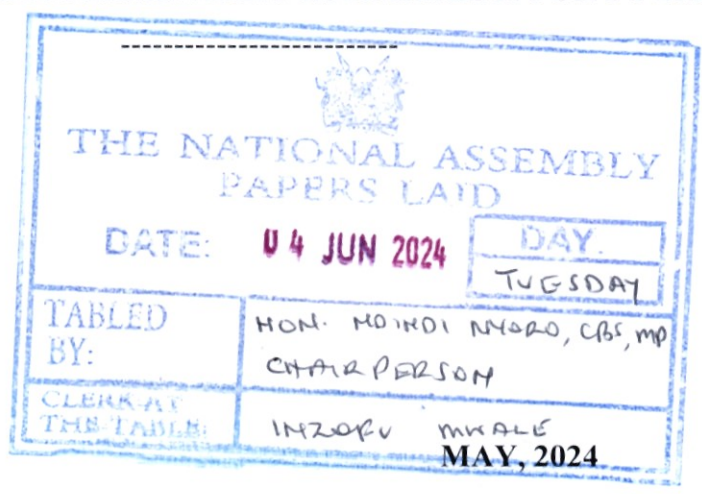 THE NATIONAL ASSEMBLY
PAPERS LAID
DATE: 04 JUN 2024
DAY.
TUESDAY
TABLED BY:
HON. NDINDI NYORO, CBS, MP
CHAIRPERSON
CLERK-AT THE-TABLE:
INZOFU MWALE
MAY, 2024